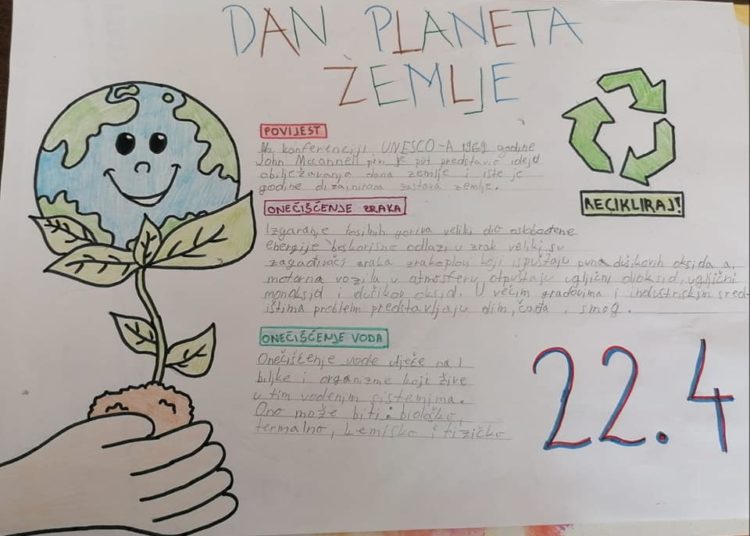 DAN PLANETA
ZEMLJE
POVIJEST
Na konferenciji UNESCO-A 1969 godine
John Mcconnell prvi je put predstavio ideju
obilježavanja dana zemlje i iste je
godine dizajnirana zastava zemlje.
RECIKLIRAJ!
ONEČIŠĆENJE ZRAKA
Izgaranje fosilnih goriva veliki dio oslobođene
energije beskorisno odlazi u zrak veliki su
zagađivači zraka zrakoplovi koji ispuštaju puno dušikovih oksida a
motorna vozila u atmosferu otpuštaju ugljični dioksid, ugljični
monoksid i dušikov oksid. U većim gradovima i industrijskim sred-
ištima problem predstavljaju dim, čađa, smog.
ONEČIŠĆENJE VODA
Onečišćenje vode utječe na
biljke i organizme koji žive
u tim vodenim sistemima.
Ono može biti: biološko,
termalno, kemijsko i fizičko
22.4